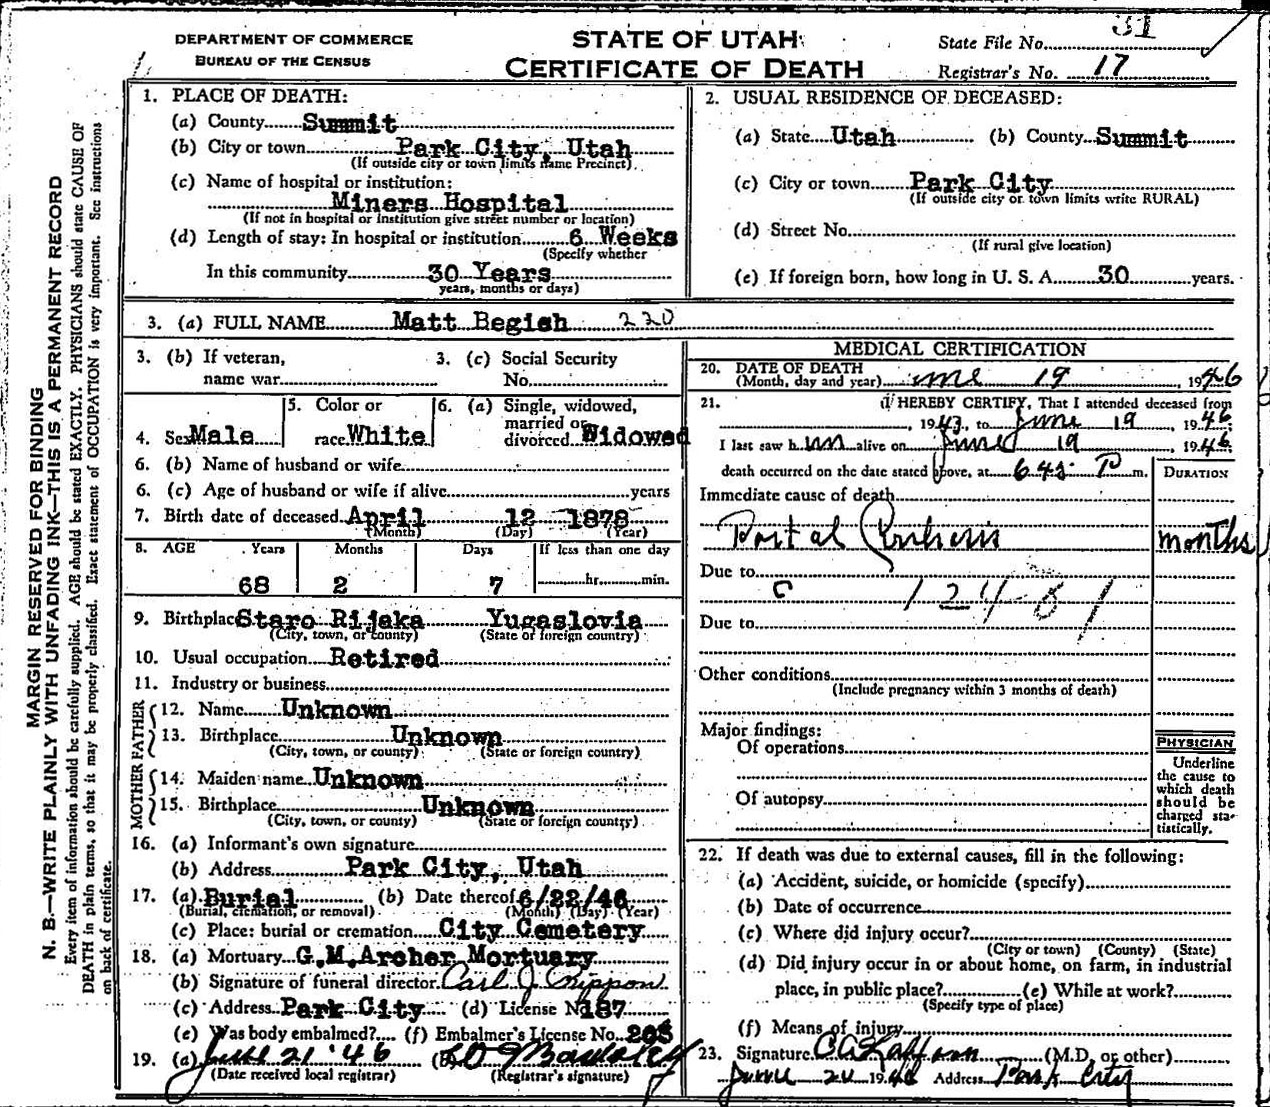 31
DEPARTMENT OF COMMERCE
BUREAU OF THE CENSUS
STATE OF UTAH
CERTIFICATE OF DEATH
State File No.
Registrar's No. 17
MARGIN RESERVED FOR BINDING
N. B.—WRITE PLAINLY WITH UNFADING INK—THIS IS A PERMANENT RECORD
Every item of information should be carefully supplied. AGE should be stated EXACTLY. PHYSICIANS should state CAUSE OF
DEATH in plain terms, so that it may be properly classified. Exact statement of OCCUPATION is very important. See instructions
on back of certificate.
1. PLACE OF DEATH:
(a) County Summit
(b) City or town Park City, Utah
(If outside city or town limits name Precinct)
(c) Name of hospital or institution:
Miners Hospital
(If not in hospital or institution give street number or location)
(d) Length of stay: In hospital or institution 6 Weeks
(Specify whether
In this community 30 Years
years, months or days)
2. USUAL RESIDENCE OF DECEASED:
(a) State Utah (b) County Summit
(c) City or town Park City
(If outside city or town limits write RURAL)
(d) Street No.
(If rural give location)
(e) If foreign born, how long in U. S. A. 30 years.
3. (a) FULL NAME Matt Begish 220
3. (b) If veteran,
name war
3. (c) Social Security
No.
4. Sex Male
5. Color or
race White
6. (a) Single, widowed,
married or
divorced Widowed
6. (b) Name of husband or wife
6. (c) Age of husband or wife if alive years
7. Birth date of deceased April 12 1878
(Month) (Day) (Year)
8. AGE Years Months Days If less than one day
68 2 7 hr. min.
9. Birthplace Staro Rijaka Yugaslovia
(City, town, or county) (State or foreign country)
10. Usual occupation Retired
11. Industry or business
FATHER
12. Name Unknown
13. Birthplace Unknown
(City, town, or county) (State or foreign country)
MOTHER
14. Maiden name Unknown
15. Birthplace Unknown
(City, town, or county) (State or foreign country)
16. (a) Informant's own signature
(b) Address Park City, Utah
17. (a) Burial (b) Date thereof 6/22/46
(Burial, cremation, or removal) (Month) (Day) (Year)
(c) Place: burial or cremation City Cemetery
18. (a) Mortuary G.M.Archer Mortuary
(b) Signature of funeral director Carl J.
(c) Address Park City (d) License No. 187
(e) Was body embalmed? (f) Embalmer's License No. 205
19. (a) June 21 '46 (b)
(Date received local registrar) (Registrar's signature)
MEDICAL CERTIFICATION
20. DATE OF DEATH
(Month, day and year) June 19, 1946
21. I HEREBY CERTIFY, That I attended deceased from
, 1943, to June 19, 1946;
I last saw him alive on June 19, 1946;
death occurred on the date stated above, at 6 45 P m.
DURATION
Immediate cause of death
Portal months
Due to
C 124-B1
Due to
Other conditions
(Include pregnancy within 3 months of death)
Major findings:
Of operations
Of autopsy
PHYSICIAN
Underline
the cause to
which death
should be
charged sta-
tistically.
22. If death was due to external causes, fill in the following:
(a) Accident, suicide, or homicide (specify)
(b) Date of occurrence
(c) Where did injury occur?
(City or town) (County) (State)
(d) Did injury occur in or about home, on farm, in industrial
place, in public place? (e) While at work?
(Specify type of place)
(f) Means of injury
23. Signature (M.D. or other)
June 20 1946 Address Park City